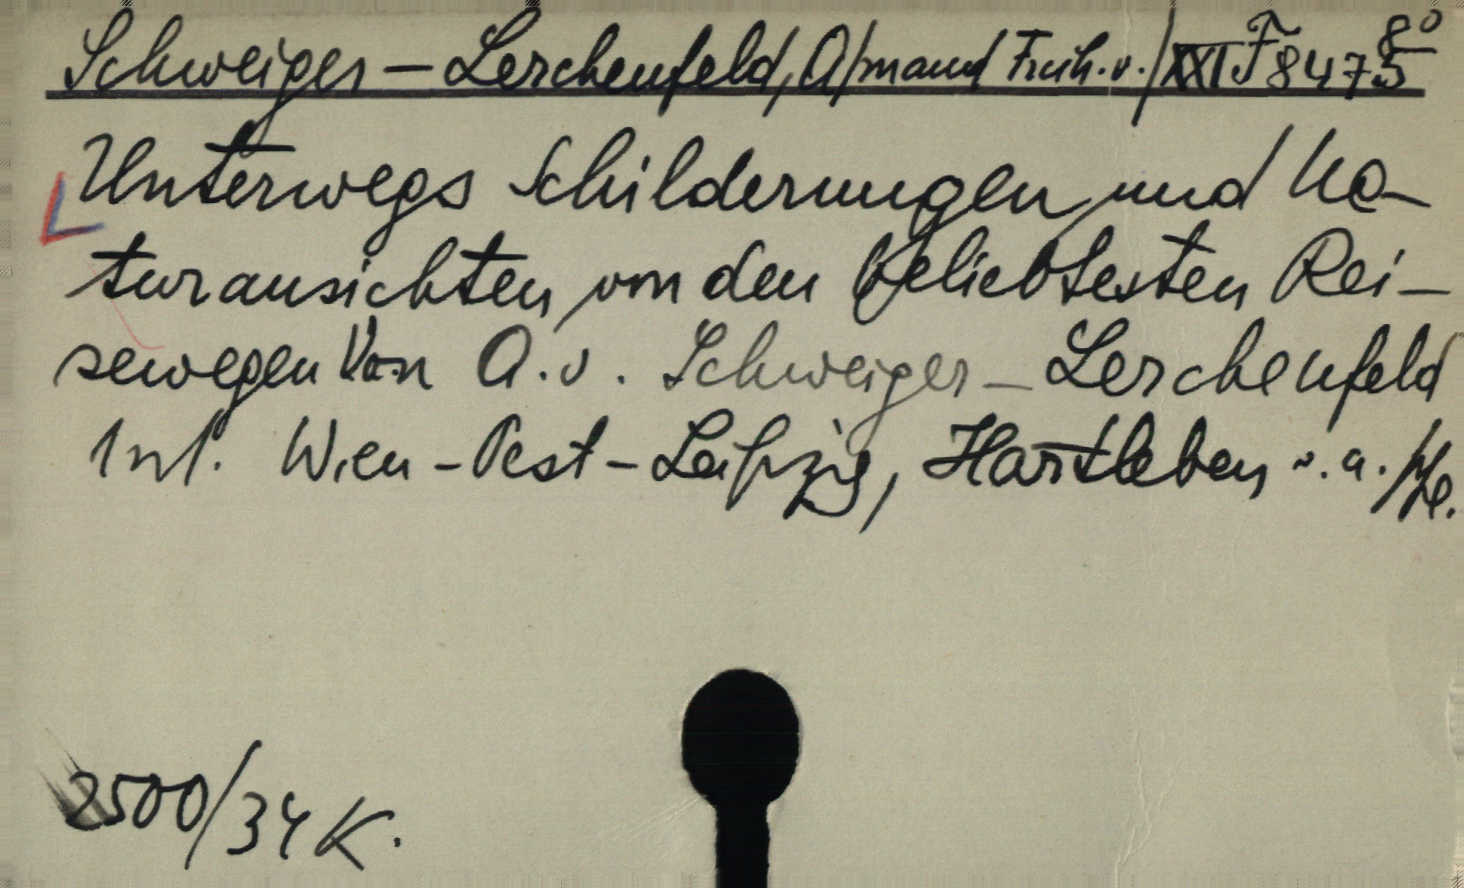 Schweiger-Lerchenfeld, A/mand Freih. v./ XXI F 8475 8°
Unterwegs Schilderungen und Na-
turansichten von den beliebtesten Rei-
sewegen Von A. v. Schweiger-Lerchenfeld
Wien-Pest-Leipzig, Hartleben
2500/34 K.